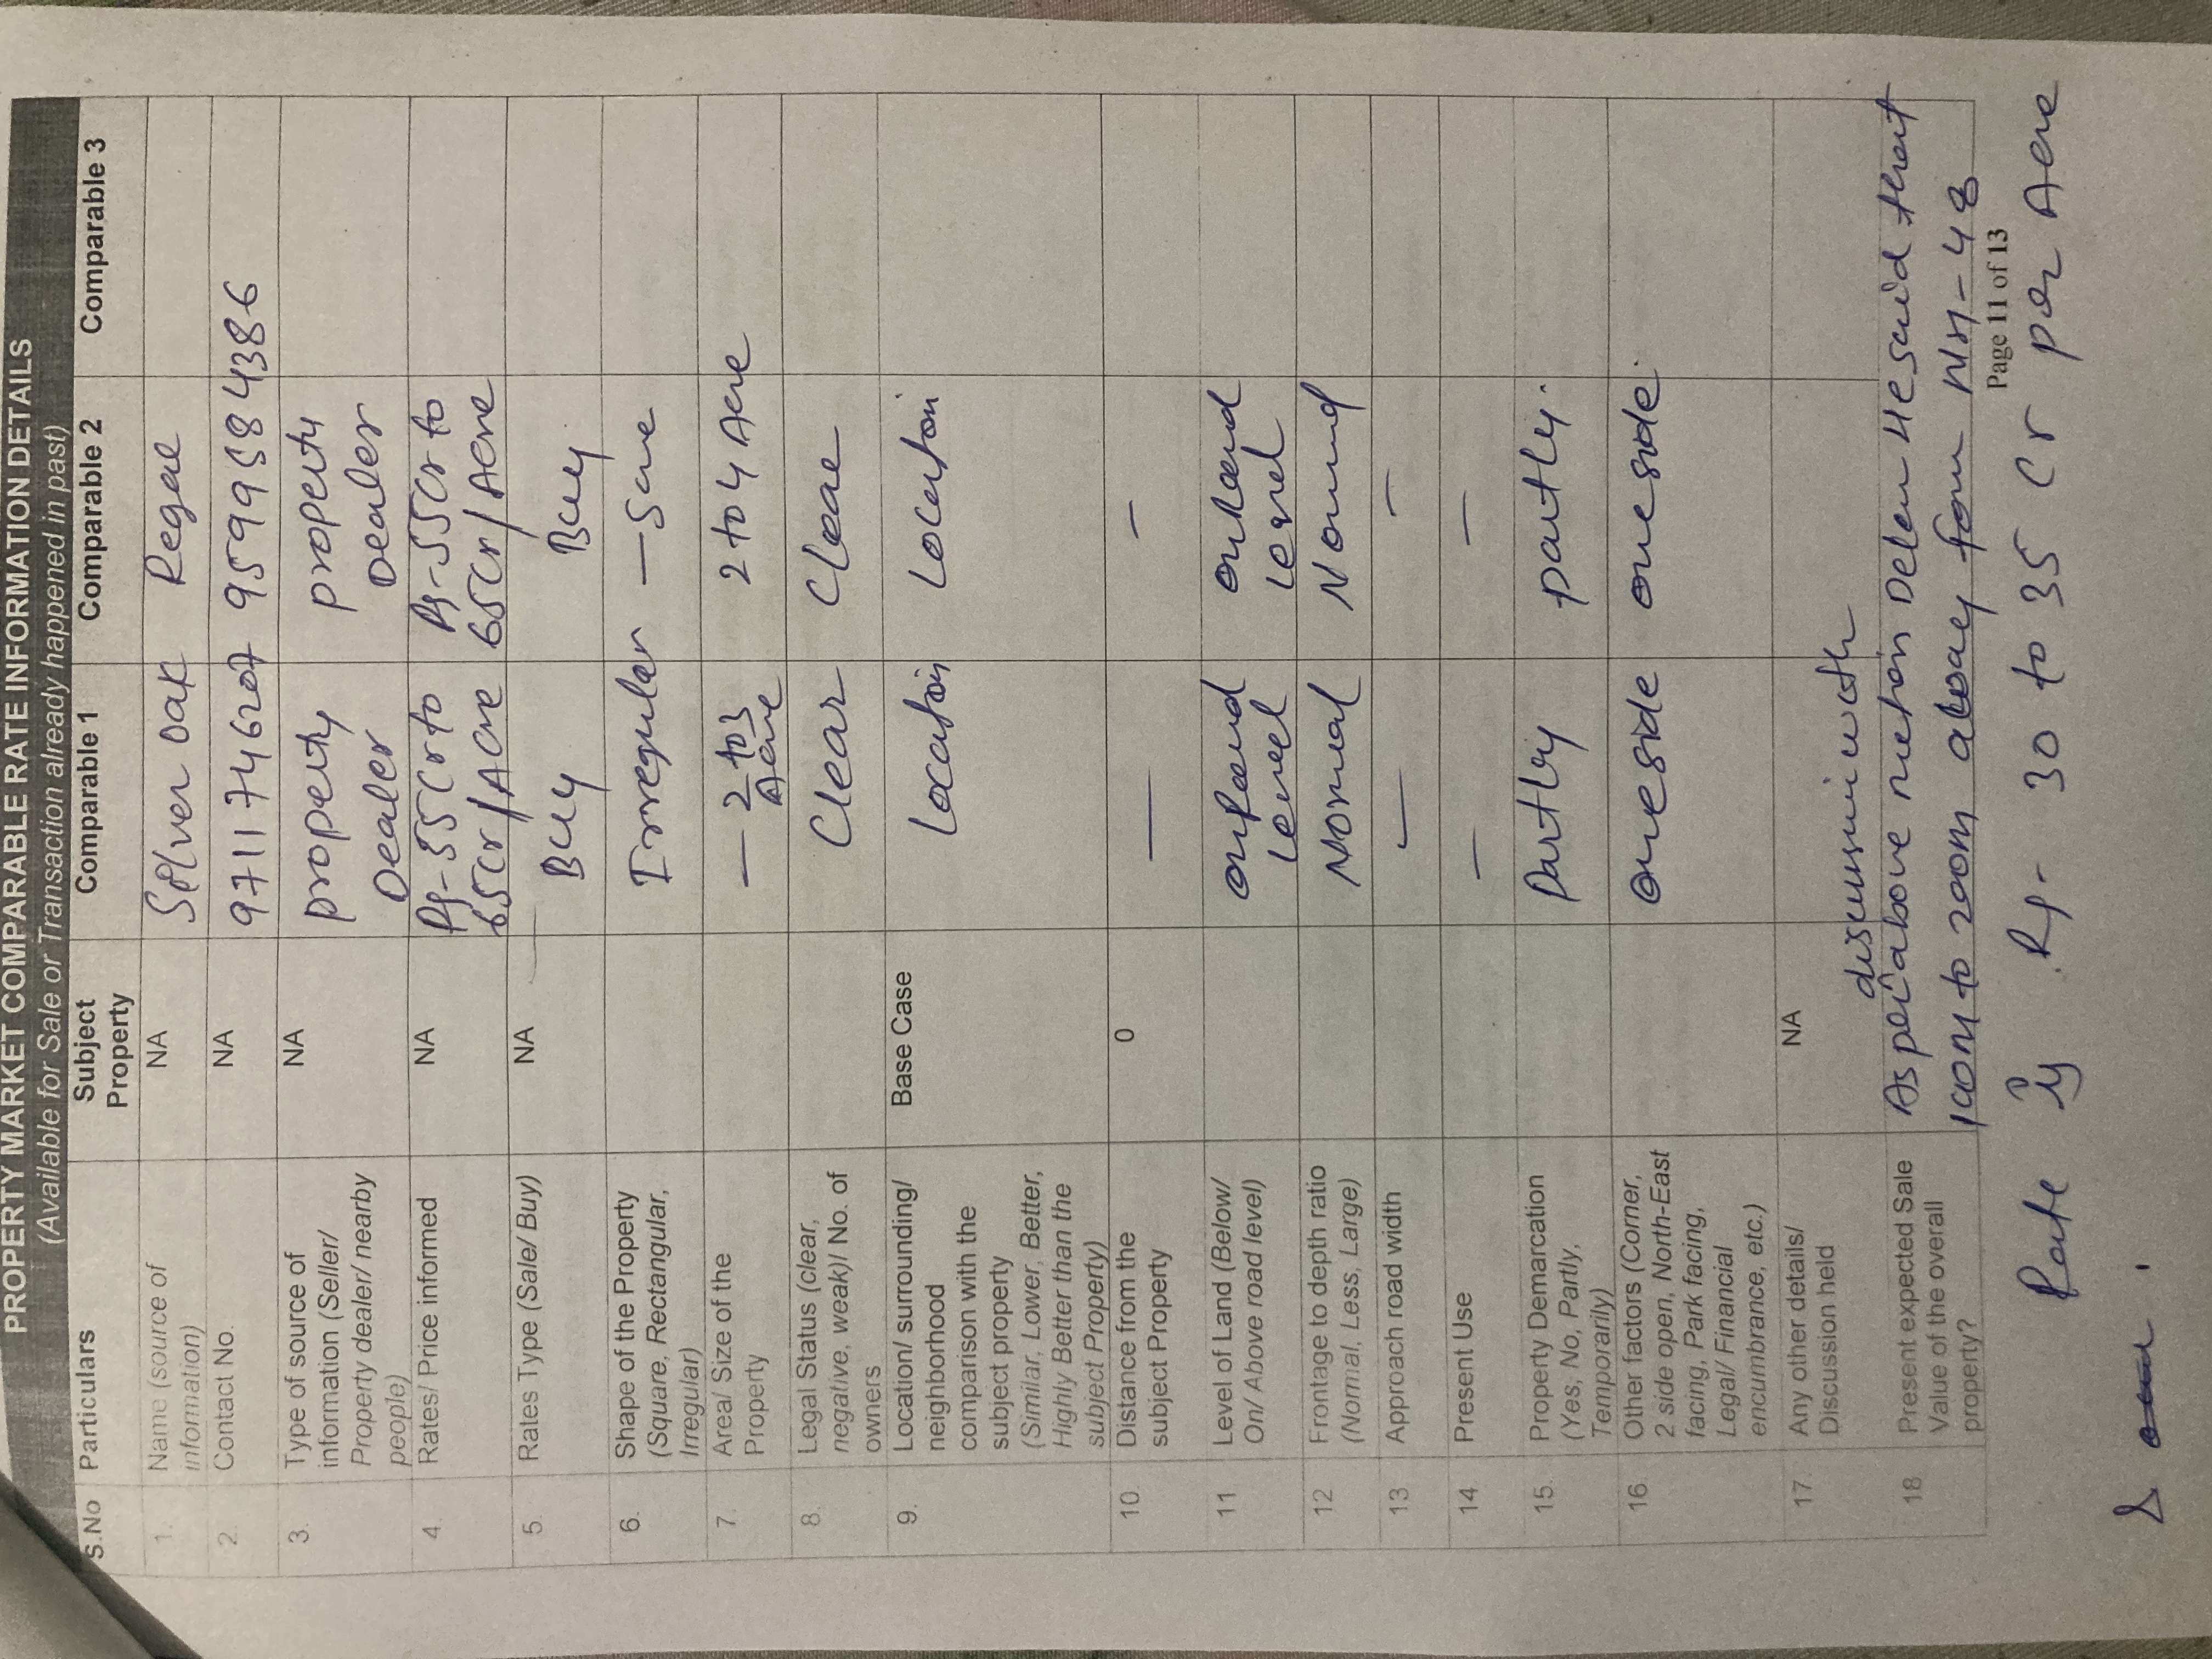 PROPERTY MARKET COMPARABLE RATE INFORMATION DETAILS
(Available for Sale or Transaction already happened in past)
S.No Particulars Subject Property Comparable 1 Comparable 2 Comparable 3
1. Name (source of information) NA Silver oak Regae
2. Contact No. NA 97111746207 9599584386
3. Type of source of information (Seller/ Property dealer/ nearby people) NA property Dealer property Dealer
4. Rates/ Price informed NA Rs-55Cr to 65Cr/Acre Rs-55Cr to 65Cr/Acre
5. Rates Type (Sale/ Buy) NA Buy Buy
6. Shape of the Property (Square, Rectangular, Irregular) Irregular —
7. Area/ Size of the Property — 2 to 3 Acre 2 to 4 Acre
8. Legal Status (clear, negative, weak)/ No. of owners Clear Cleae
9. Location/ surrounding/ neighborhood comparison with the subject property (Similar, Lower, Better, Highly Better than the subject Property) Base Case Location Location
10. Distance from the subject Property 0 — —
11 Level of Land (Below/ On/ Above road level) level level
12 Frontage to depth ratio (Normal, Less, Large) Normal
13 Approach road width — —
14. Present Use — —
15. Property Demarcation (Yes, No, Partly, Temporarily) Partly partly.
16 Other factors (Corner, 2 side open, North-East facing, Park facing, Legal/ Financial encumbrance, etc.) one side one side.
17. Any other details/ Discussion held NA
18 Present expected Sale Value of the overall property?
with
As per above He said that
100m to 200m away from NH-48
Page 11 of 13
Rate is Rs- 30 to 35 Cr per Acre